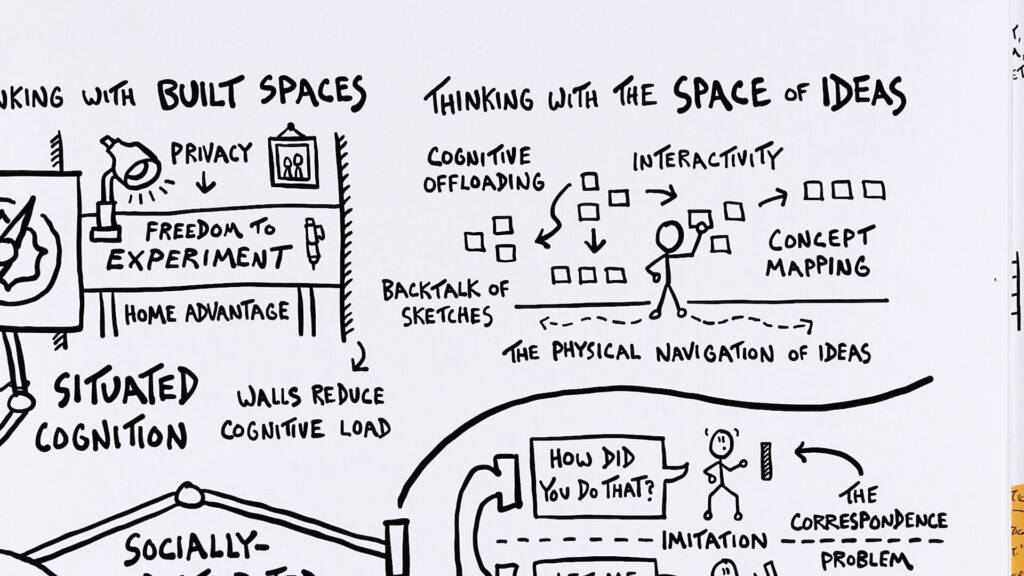 WITH BUILT SPACES
PRIVACY
FREEDOM TO
EXPERIMENT
HOME ADVANTAGE
SITUATED
COGNITION
WALLS REDUCE
COGNITIVE LOAD
THINKING WITH THE SPACE OF IDEAS
COGNITIVE
OFFLOADING
INTERACTIVITY
CONCEPT
MAPPING
BACKTALK OF
SKETCHES
THE PHYSICAL NAVIGATION OF IDEAS
HOW DID
YOU DO THAT?
THE
CORRESPONDENCE
PROBLEM
IMITATION
SOCIALLY-